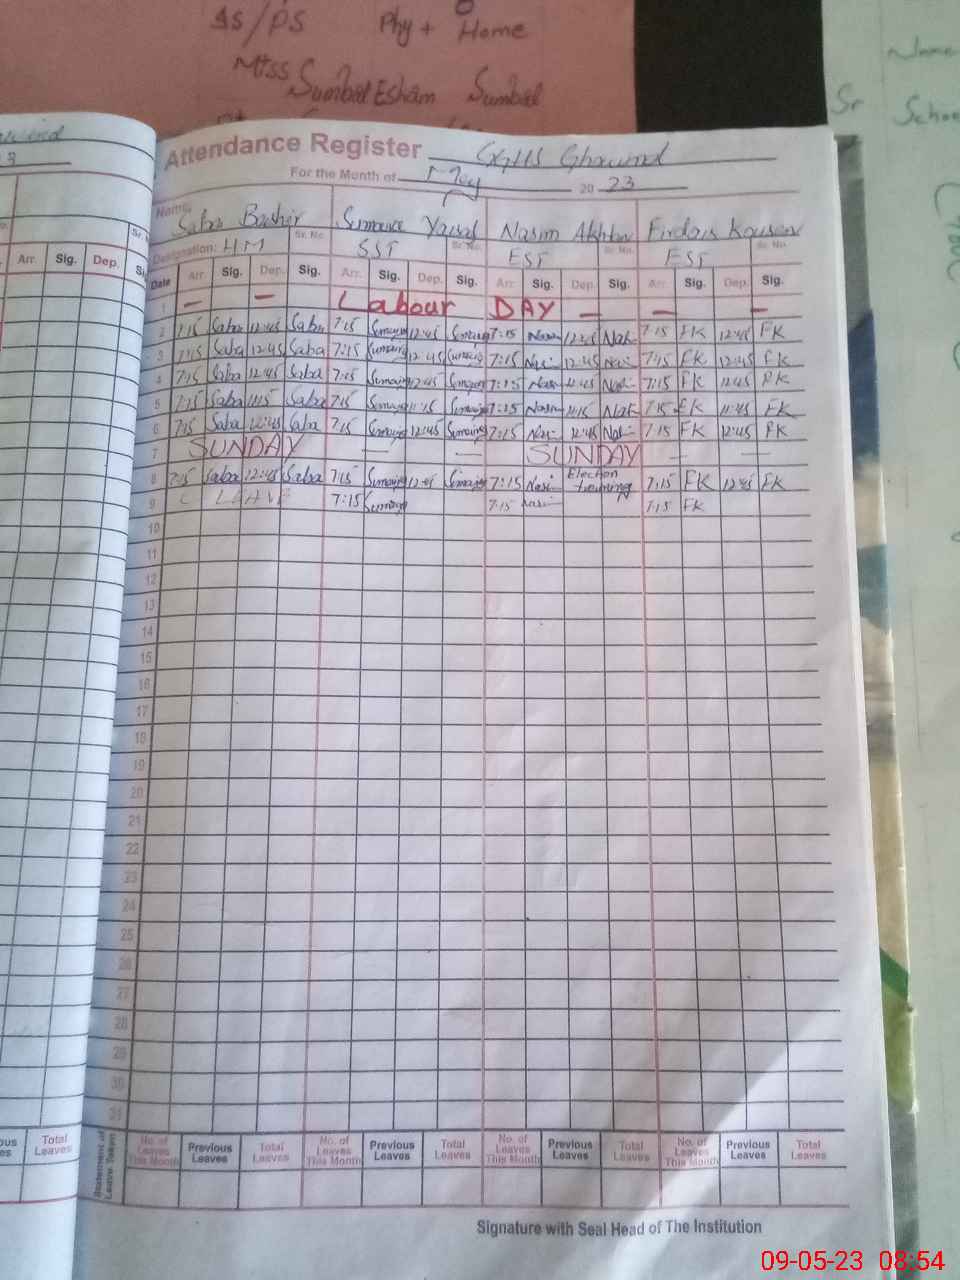 SS/PS Phy + Home
Miss Sumbal Esham Sumbal
Name
Sr School
3
Attendance Register GGHS Ghawind
For the Month of May 20 23
Name: Saba Bashir Sumaira Yousaf Nasim Akhtar Firdous Kousar
Designation: HM Sr. No. SST Sr. No. EST Sr. No. EST Sr. No.
Arr. Sig. Dep. Sig. Date Arr. Sig. Dep. Sig. Arr. Sig. Dep. Sig. Arr. Sig. Dep. Sig. Arr. Sig. Dep. Sig.
1 — — Labour DAY — — —
2 7:15 Saba 12:45 Saba 7:15 Sumaira 12:45 Sumaira 7:15 Nasim 12:45 Nasim 7:15 FK 12:45 FK
3 7:15 Saba 12:45 Saba 7:15 Sumaira 12:45 Sumaira 7:15 Nasim 12:45 Nasim 7:15 FK 12:45 FK
4 7:15 Saba 12:45 Saba 7:15 Sumaira 12:45 Sumaira 7:15 Nasim 12:45 Nasim 7:15 FK 12:45 FK
5 7:15 Saba 11:15 Saba 7:15 Sumaira 11:15 Sumaira 7:15 Nasim 11:15 Nasim 7:15 FK 11:45 FK
6 7:15 Saba 12:45 Saba 7:15 Sumaira 12:45 Sumaira 7:15 Nasim 12:45 Nasim 7:15 FK 12:45 FK
7 SUNDAY — — SUNDAY — —
8 7:15 Saba 12:45 Saba 7:15 Sumaira 12:45 Sumaira 7:15 Nasim Election training 7:15 FK 12:45 FK
9 C LEAVE 7:15 Sumaira 7:15 Nasim 7:15 FK
10
11
12
13
14
15
16
17
18
19
20
21
22
23
24
25
26
27
28
29
30
31
Total Leaves Statement of Leave Taken No. of Leaves This Month Previous Leaves Total Leaves No. of Leaves This Month Previous Leaves Total Leaves No. of Leaves This Month Previous Leaves Total Leaves No. of Leaves This Month Previous Leaves Total Leaves
Signature with Seal Head of The Institution
09-05-23 08:54